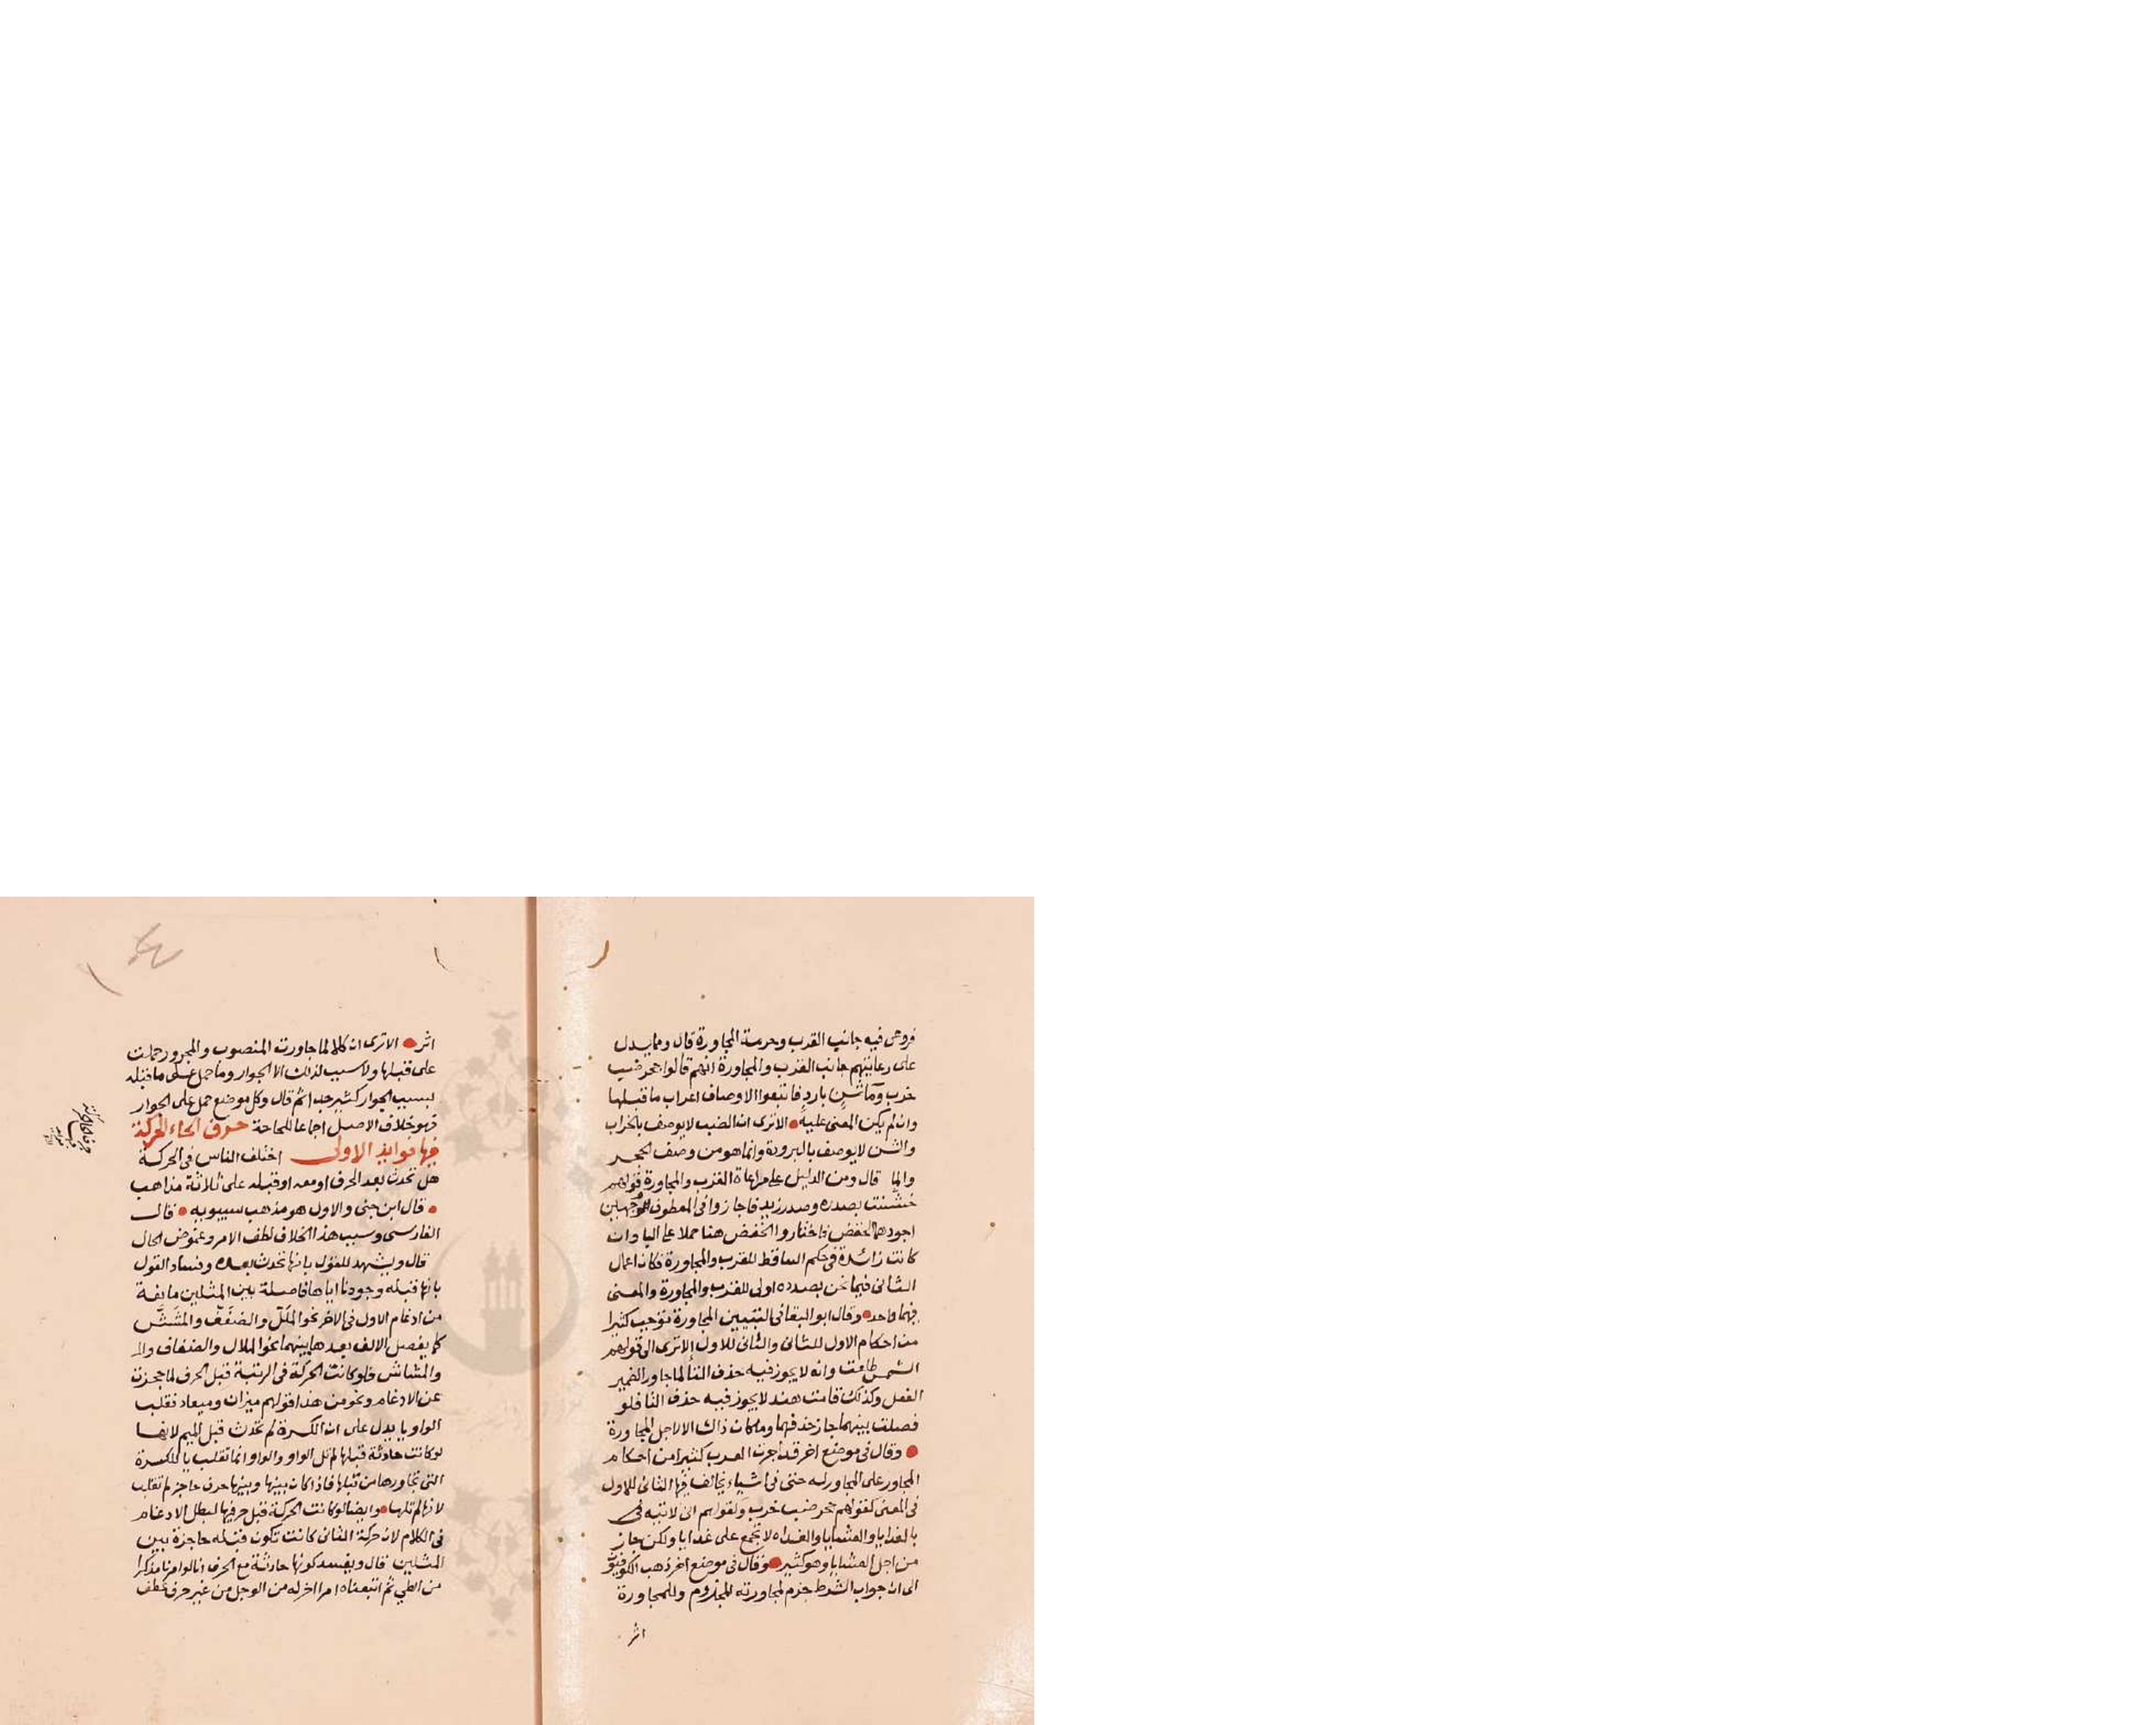 فروعى فيه جانب القرب وحرمة المجاورة قال ومما يدل
على رعايتهم جانب القرب والمجاورة انهم قالوا جحر ضب
خرب وماء شن بارد فاتبعوا الاوصاف اعراب ما قبلها
وان لم يكن المعنى عليه الا ترى ان الضب لا يوصف بالخراب
والشن لا يوصف بالبرودة وانما هو من وصف الجحر
والما قال ومن الدليل على مراعاة القرب والمجاورة قولهم
خشنت بصدره وصدر زيد فاجازوا فى المعطوف وجهين
اجودهما الخفض فاختاروا الخفض هنا حملا على البا وان
كانت زائدة فى حكم الساقط للقرب والمجاورة فكان اعمال
الثانى فيما نحن بصدده اولى للقرب والمجاورة والمعنى
فيهما واحد وقال ابو البقا فى التبيين المجاورة توجب كثيرا
من احكام الاول للثانى والثانى للاول الا ترى الى قولهم
الشمس طلعت وانه لا يجوز فيه حذف التا لما جاور الضمير
الفعل وكذلك قامت هند لا يجوز فيه حذف التا فلو
فصلت بينهما جاز حذفها وما كان ذاك الا لاجل المجاورة
وقال فى موضع اخر قد اجرت العرب كثيرا من احكام
المجاور على المجاور له حتى فى اشياء يخالف فيها الثانى للاول
فى المعنى كقولهم جحر ضب خرب وكقولهم انى لاتيه
بالغدايا والعشايا والغداه لا تجمع على غدايا ولكن جاز
من اجل العشايا وهو كثير وقال فى موضع اخر ذهب الكوفيون
الى ان جواب الشرط جزم لمجاورته المجزوم وللمجاورة
اثر
اثر الا ترى ان كلا لما جاورت المنصوب والمجرور حملت
على قبلها ولا سبب لذلك الا الجوار وما حمل على ما قبله
بسبب الجوار كثير جدا ثم قال وكل موضع حمل على الجوار
فهو خلاف الاصل اجماعا للحاجة حرف الحاء الحركة
فيها فوايد الاولى اختلف الناس فى الحركة
هل تحدث بعد الحرف او معه او قبله على ثلاثة مذاهب
قال ابن جنى والاول هو مذهب سيبويه قال
الفارسى وسبب هذا الخلاف لطف الامر وغموض الحال
قال ويشهد للقول بانها تحدث بعده وفساد القول
بانها قبله وجودنا اياها فاصلة بين المثلين مانعة
من ادغام الاول فى الاخر نحو الملل والضفف والمشش
كما يفصل الالف بعدها بينهما نحو الملال والضفاف وال
والمشاش فلو كانت الحركة فى الرتبة قبل الحرف لما حجزت
عن الادغام ونحو من هذا قولهم ميزان وميعاد تقلب
الواو يا يدل على ان الكسرة لم تحدث قبل الميم لانها
لو كانت حادثة قبلها لم تل الواو والواو انما تقلب يا للكسرة
التى تجاورها من قبلها فاذا كان بينها وبينها حرف حاجز لم تقلب
لانها لم تلها وايضا لو كانت الحركة قبل حرفها لبطل الادغام
فى الكلام لان حركة الثانى كانت تكون قبله حاجزة بين
المثلين قال ويفسد كونها حادثة مع الحرف انا لو امرنا مذكرا
من الطى ثم اتبعناه امرا اخر له من الوجل من غير حرف عطف